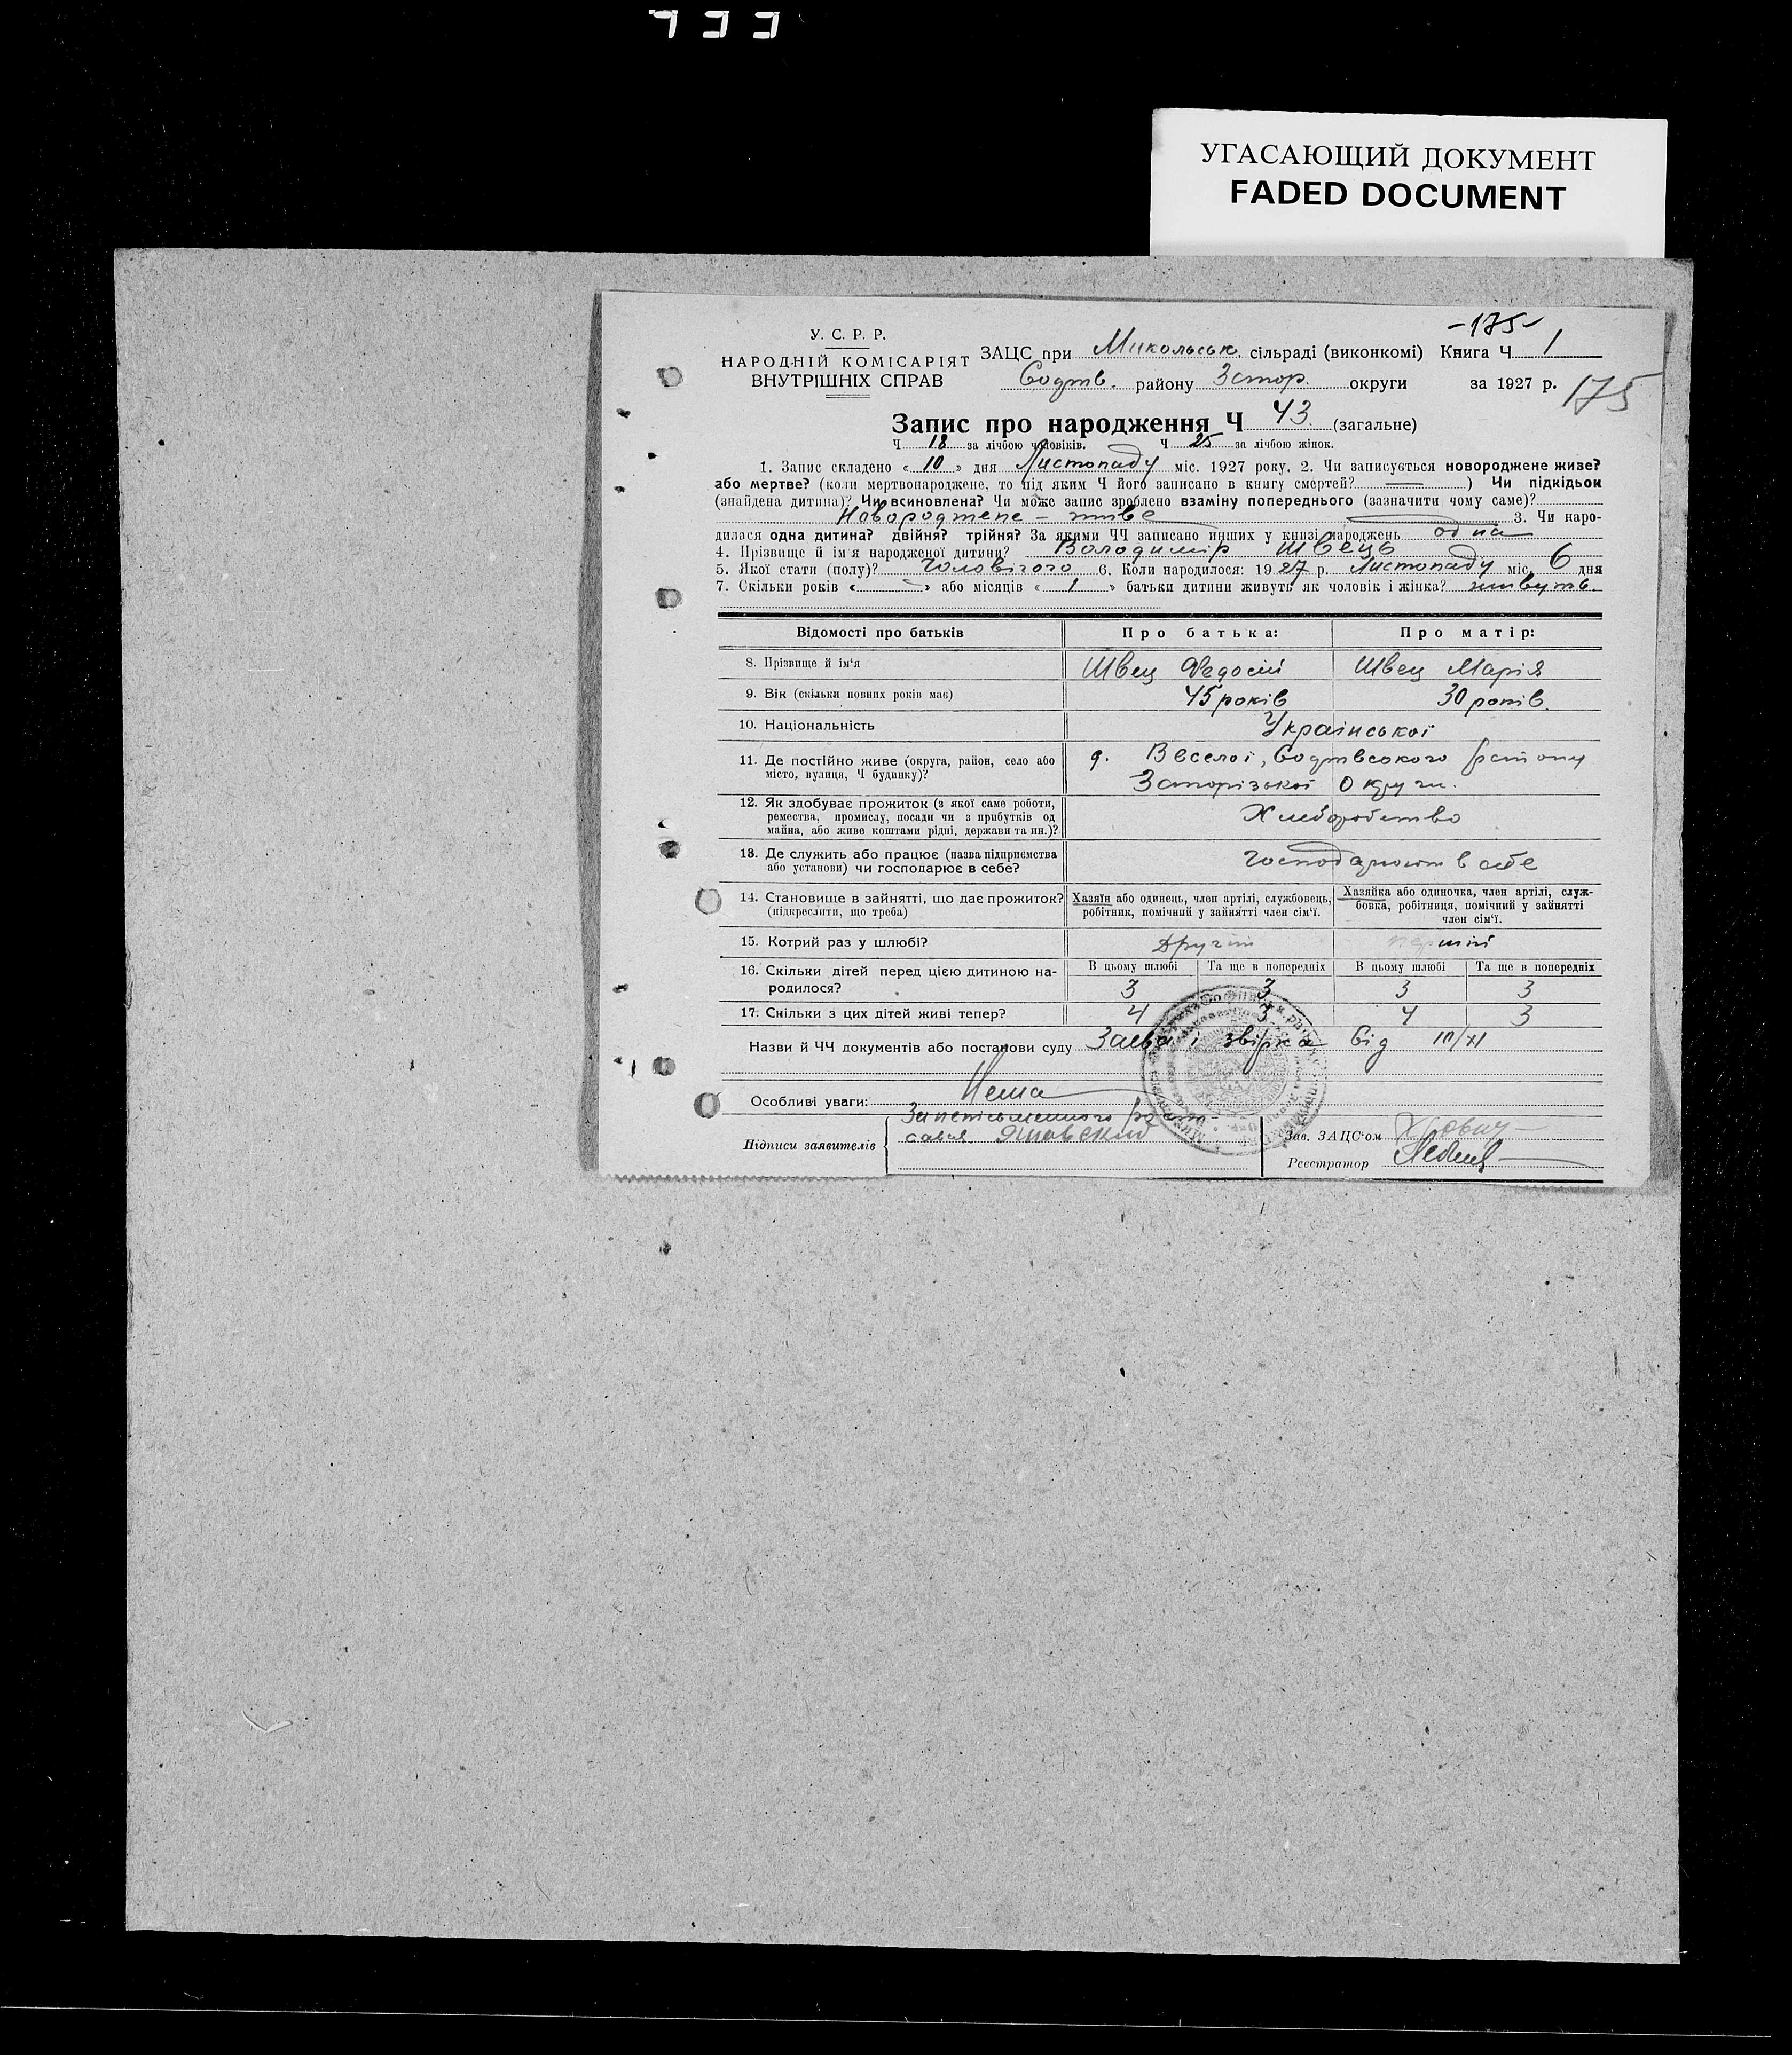 УГАСАЮЩИЙ ДОКУМЕНТ
FADED DOCUMENT
-175-
У. С. Р. Р.
НАРОДНІЙ КОМІСАРІЯТ
ВНУТРІШНІХ СПРАВ
ЗАЦС при Микольськ. сільраді (виконкомі) Книга Ч 1
району Запор. округи за 1927 р. 175
Запис про народження Ч 43 (загальне)
Ч 18 за лічбою чоловіків. Ч 25 за лічбою жінок.
1. Запис складено « 10 » дня Листопаду міс. 1927 року. 2. Чи записується новороджене живе?
або мертве? (коли мертвонароджене, то під яким Ч його записано в книгу смертей? — ) Чи підкідьок
(знайдена дитина)? Чи всиновлена? Чи може запис зроблено взаміну попереднього (зазначити чому саме)?
Новороджене - живе 3. Чи наро-
дилася одна дитина? двійня? трійня? За якими ЧЧ записано инших у книзі народжень одна
4. Прізвище й ім'я народженої дитини? Володимір Швець
5. Якої стати (полу)? Чоловічого 6. Коли народилося: 1927 р. Листопаду міс. 6 дня
7. Скільки років « - » або місяців « 1 » батьки дитини живуть як чоловік і жінка? живуть
Відомості про батьків Про батька: Про матір:
8. Прізвище й ім'я Швец Федосій Швец Марія
9. Вік (скільки повних років має) 45 років 30 років
10. Національність Української
11. Де постійно живе (округа, район, село або місто, вулиця, Ч будинку)? Веселої, району
Запорізької Округи.
12. Як здобуває прожиток (з якої саме роботи,
ремества, промислу, посади чи з прибутків од
майна, або живе коштами рідні, держави та ин.)? Хліборобство
13. Де служить або працює (назва підприємства
або установи) чи господарює в себе? в себе
14. Становище в зайнятті, що дає прожиток?
(підкреслити, що треба)
Хазяїн або одинець, член артілі, службовець,
робітник, помічний у зайнятті член сім'ї.
Хазяйка або одиночка, член артілі, служ-
бовка, робітниця, помічний у зайнятті
член сім'ї.
15. Котрий раз у шлюбі? Другий перший
16. Скільки дітей перед цією дитиною на-
родилося?
В цьому шлюбі Та ще в попередніх В цьому шлюбі Та ще в попередніх
3 3 3 3
17. Скільки з цих дітей живі тепер? 4 3 4 3
Назви й ЧЧ документів або постанови суду Заява і звірка від 10/XI
Особливі уваги: Нема
Підписи заявителів
Зав. ЗАЦС'ом
Реєстратор